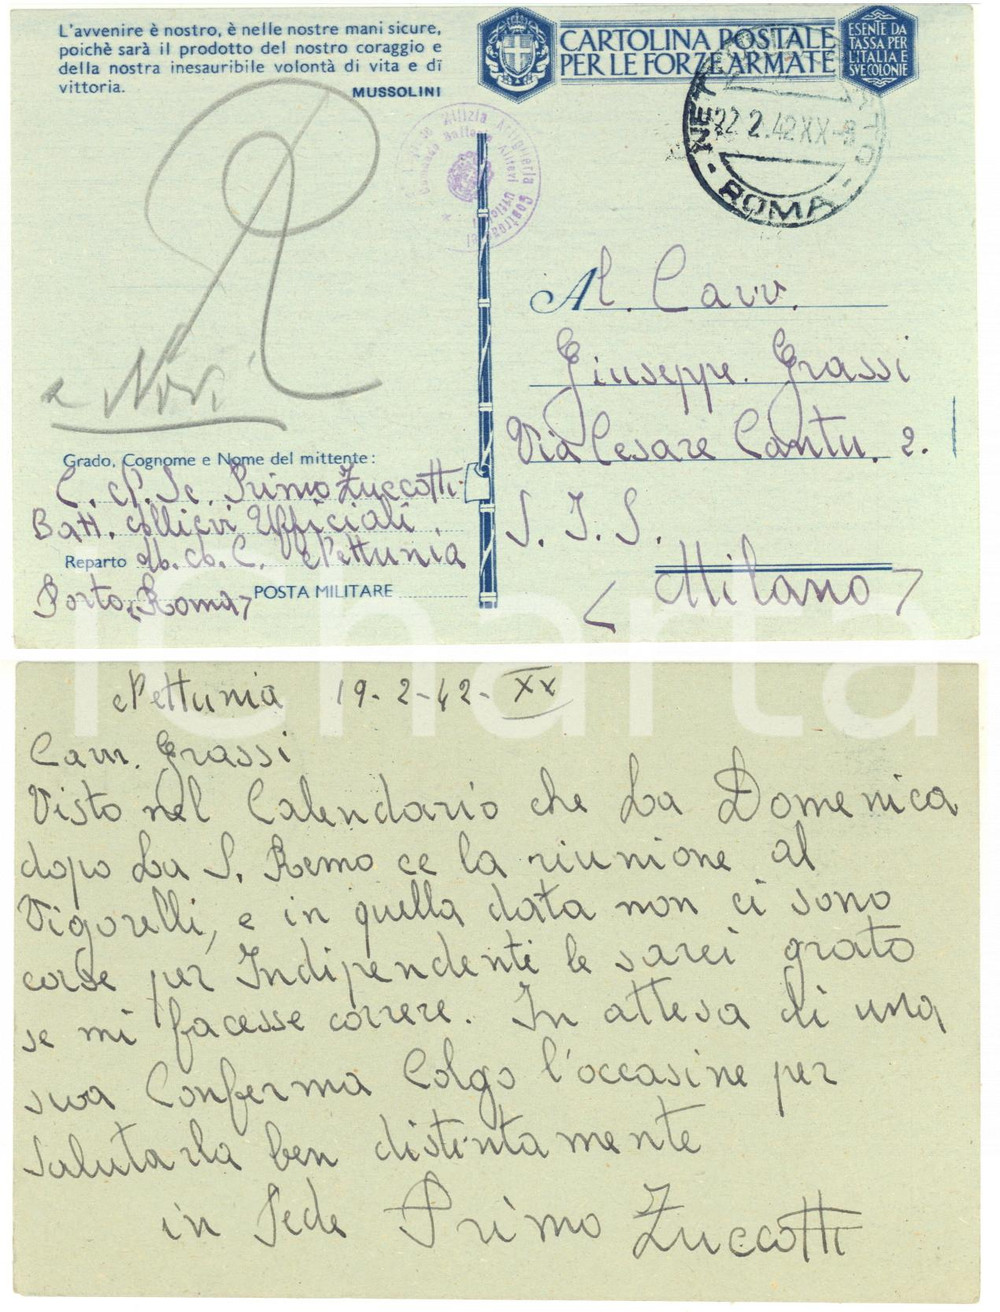 L'avvenire è nostro, è nelle nostre mani sicure,
poichè sarà il prodotto del nostro coraggio e
della nostra inesauribile volontà di vita e di
vittoria.
MUSSOLINI
CARTOLINA POSTALE
PER LE FORZE ARMATE
ESENTE DA
TASSA PER
L'ITALIA E
SVE COLONIE
22 2.42 XX-8
ROMA
Milizia Artiglieria
Al. Cavv.
Giuseppe. Grassi
Via Cesare Cantu. 2.
S. I. S.
(Milano)
Grado, Cognome e Nome del mittente:
C. Sc. Primo Zuccotti
Batt. Allievi Ufficiali
Reparto C. Nettunia
Porto (Roma)
POSTA MILITARE
iCharta
Nettunia 19-2-42-XX
Cavv. Grassi
Visto nel Calendario che La Domenica
dopo La S. Remo ce la riunione al
Vigorelli, e in quella data non ci sono
corse per Indipendenti le sarei grato
se mi facesse correre. In attesa di una
sua Conferma Colgo l'occasine per
Salutarla ben distintamente
in fede Primo Zuccotti